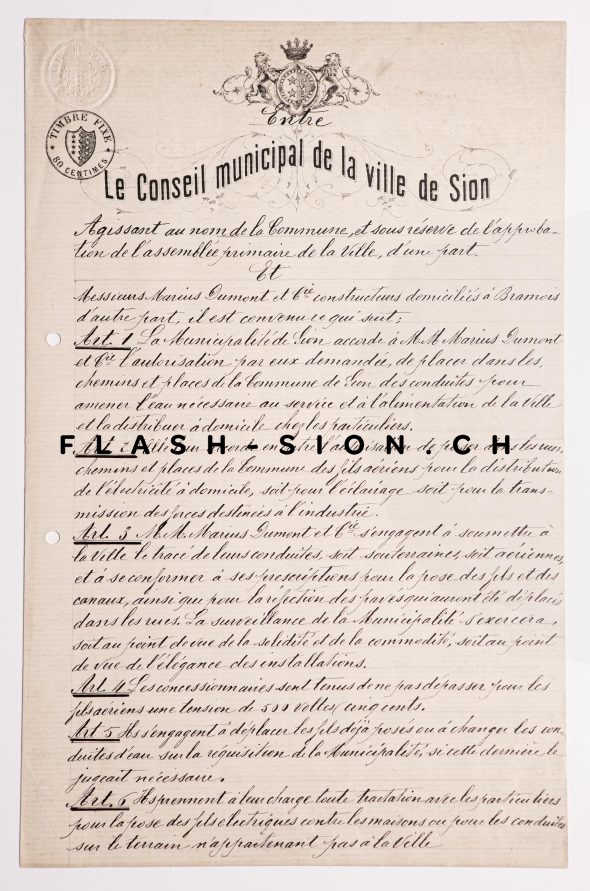 TIMBRE FIXE
80 CENTIMES
Entre
Le Conseil municipal de la ville de Sion
Agissant au nom de la Commune, et sous réserve de l'approba-
tion de l'assemblée primaire de la Ville, d'un part.
Et
Messieurs Marius Dumont et Cie constructeurs domiciliés à Bramois
d'autre part, il est convenu ce qui suit;
Art. 1 La Municipalité de Sion accorde à M.M Marius Dumont
et Cie l'autorisation par eux demandée, de placer dans les,
chemins et places de la Commune de Sion des conduites pour
amener l'eau nécessaire au service et à l'alimentation de la Ville
et la distribuer à domicile chez les particuliers.
FLASH-SION.CH
Art. de poser dans les rues,
chemins et places de la Commune des fils aériens pour la distribution
de l'électricité à domicile, soit pour l'éclairage soit pour la trans-
mission des forces destinées à l'industrie.
Art. 3 M.M. Marius Dumont et Cie s'engagent à soumettre à
la Ville le tracé de leurs conduites, soit souterraines, soit aériennes,
et à se conformer à ses prescriptions pour la pose des fils et des
canaux, ainsi que pour la réfection des pavés qui auront été déplacés
dans les rues. La surveillance de la Municipalité s'exercera,
soit au point de vue de la solidité et de la commodité, soit au point
de vue de l'élégance des installations.
Art. 4 Les concessionnaires sont tenus de ne pas dépasser pour les
fils aériens une tension de 500 volts/cinq cents.
Art 5 Ils s'engagent à déplacer les fils déjà posés ou à changer les con-
duites d'eau sur la réquisition de la Municipalité, si cette dernière le
jugeait nécessaire.
Art. 6 Ils prennent à leur charge toute tractation avec les particuliers
pour la pose des fils électriques contre les maisons ou pour les conduites
sur le terrain n'appartenant pas à la Ville